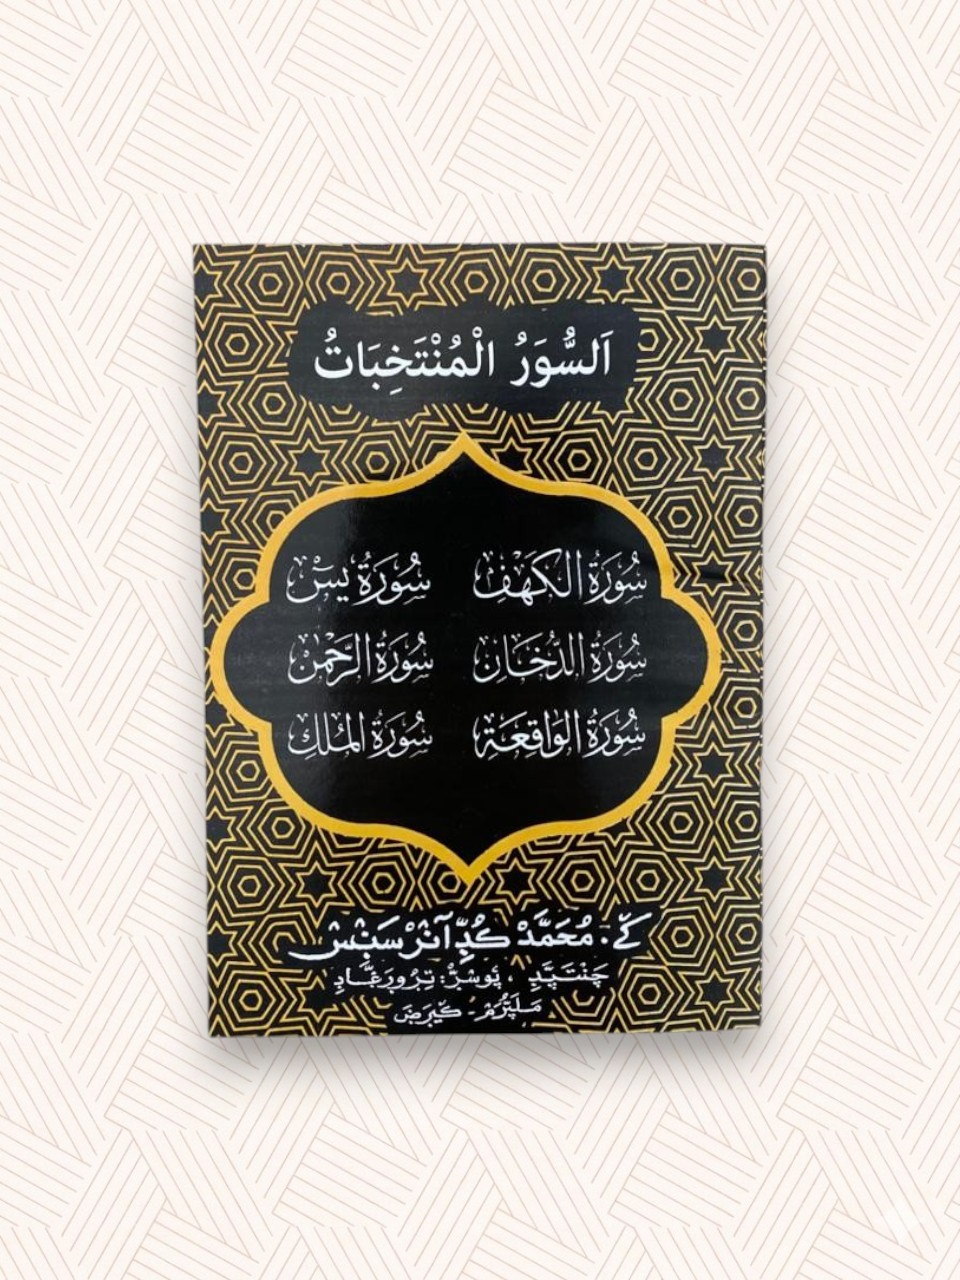 اَلسُّوَرُ الْمُنْتَخِبَاتُ
سُورَةُ الْكَهْفِ سُورَةُ يسٓ
سُورَةُ الدُّخَانِ سُورَةُ الرَّحْمٰنِ
سُورَةُ الْوَاقِعَةِ سُورَةُ الْمُلْكِ
كے. مُحَمَّدْ كُڊِّ آنْڔْ سَنْس
چَنْتَپَّڊِ ، پَوسْڔْ: تِرُورَنْغَاڊِ
مَلَپُّرَمْ - كٜيرَضَ